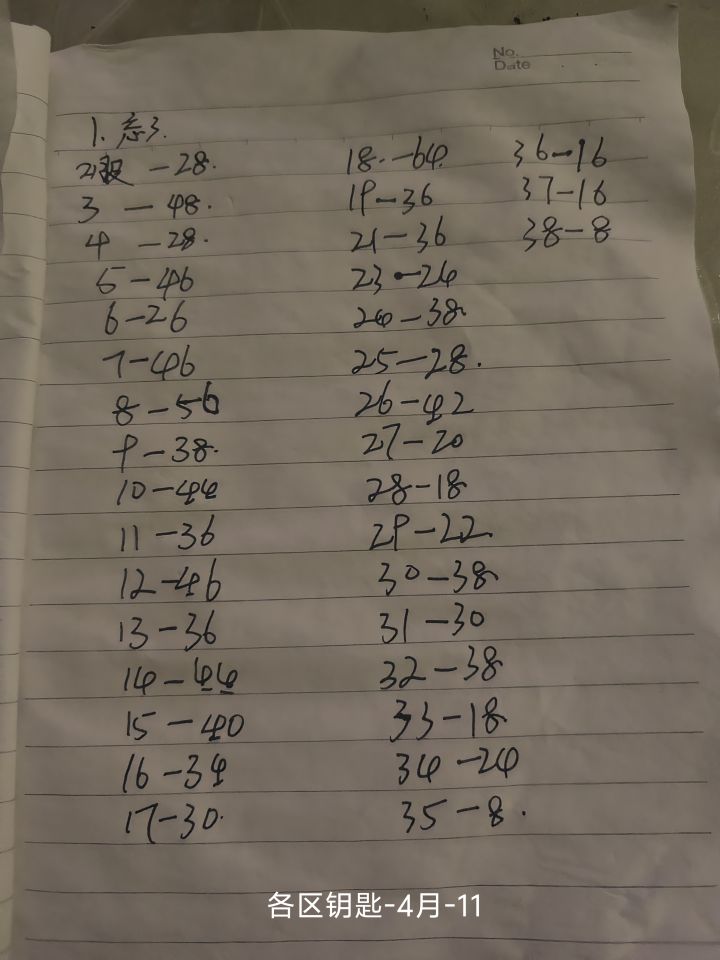 No.
Date
1. 忘3.
2 -28.
3 -48.
4 -28.
5-46
6-26
7-46
8-56
9-38.
10-44
11-36
12-46
13-36
14-44
15-40
16-34
17-30.
18.-64
19-36
21-36
23-24
24-38.
25-28.
26-42
27-20
28-18
29-22
30-38
31-30
32-38
33-18
34-24
35-8.
36-16
37-16
38-8
各区钥匙-4月-11